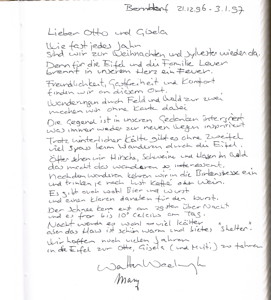 Berndorf 21.12.96 - 3.1.97
Lieber Otto und Gisela
Wie fast jedes Jahr
sind wir zur Weihnachten und Sylvester wieder da.
Denn für die Eifel und die Familie Leuer
brennt in unserem Herz ein Feuer.
Freundlichkeit, Gastfreiheit und Komfort
finden wir an diesem Ort.
Wanderungen durch Feld und Wald zur zwei
machen wir ohne Karte dabei
Die Gegend ist in unseren Gedanken
was immer wieder zur neuen Wegen inspiriert
Trotz winterlicher Kälte gibt es ohne Zweifel
viel Spass beim Wandern durch die Eifel.
Öfter sehen wir Hirsche, Schweine und Hasen im Wald
das macht das wanderen so interessant.
Nach dem wanderen kehren wir in die ein
und trinken je nach lust Kaffee oder Wein.
Es gibt auch wohl Bier und Wurst
und einen klaren daneben für den Durst.
Der Schnee kam erst am 29sten über Nacht
und es fror bis 10° Celcius am Tag.
Nachts werde es wohl mal kälter
aber das Haus ist schön warm und bietes "Shelter".
Wir hoffen noch vielen Jahren
in die Eifel zur Otto, Gisela (und Mutti) zu fahren
Walter
Mary